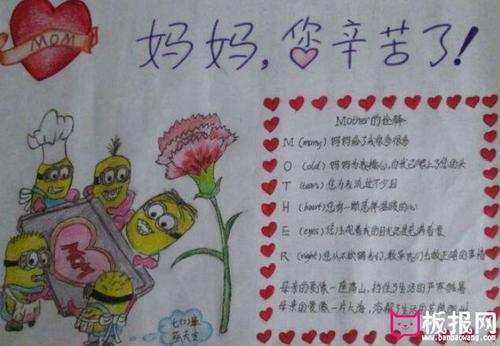 MOM
妈妈,您辛苦了!
Mother的诠释
M (many) 妈妈给了我很多很多
O (old) 妈妈为我操心,白发已爬上了您的头
T (tears) 您为我流过不少泪
H (heart) 您有一颗慈祥温暖的心
E (eyes) 您注视着我的目光总是充满着爱
R (right) 您从不欺骗我们,教导我们去做正确的事情
母亲的爱像一座高山,挡住了生活的严寒
母亲的爱像一片大海,
MOM
板报网
www.banbaowang.com